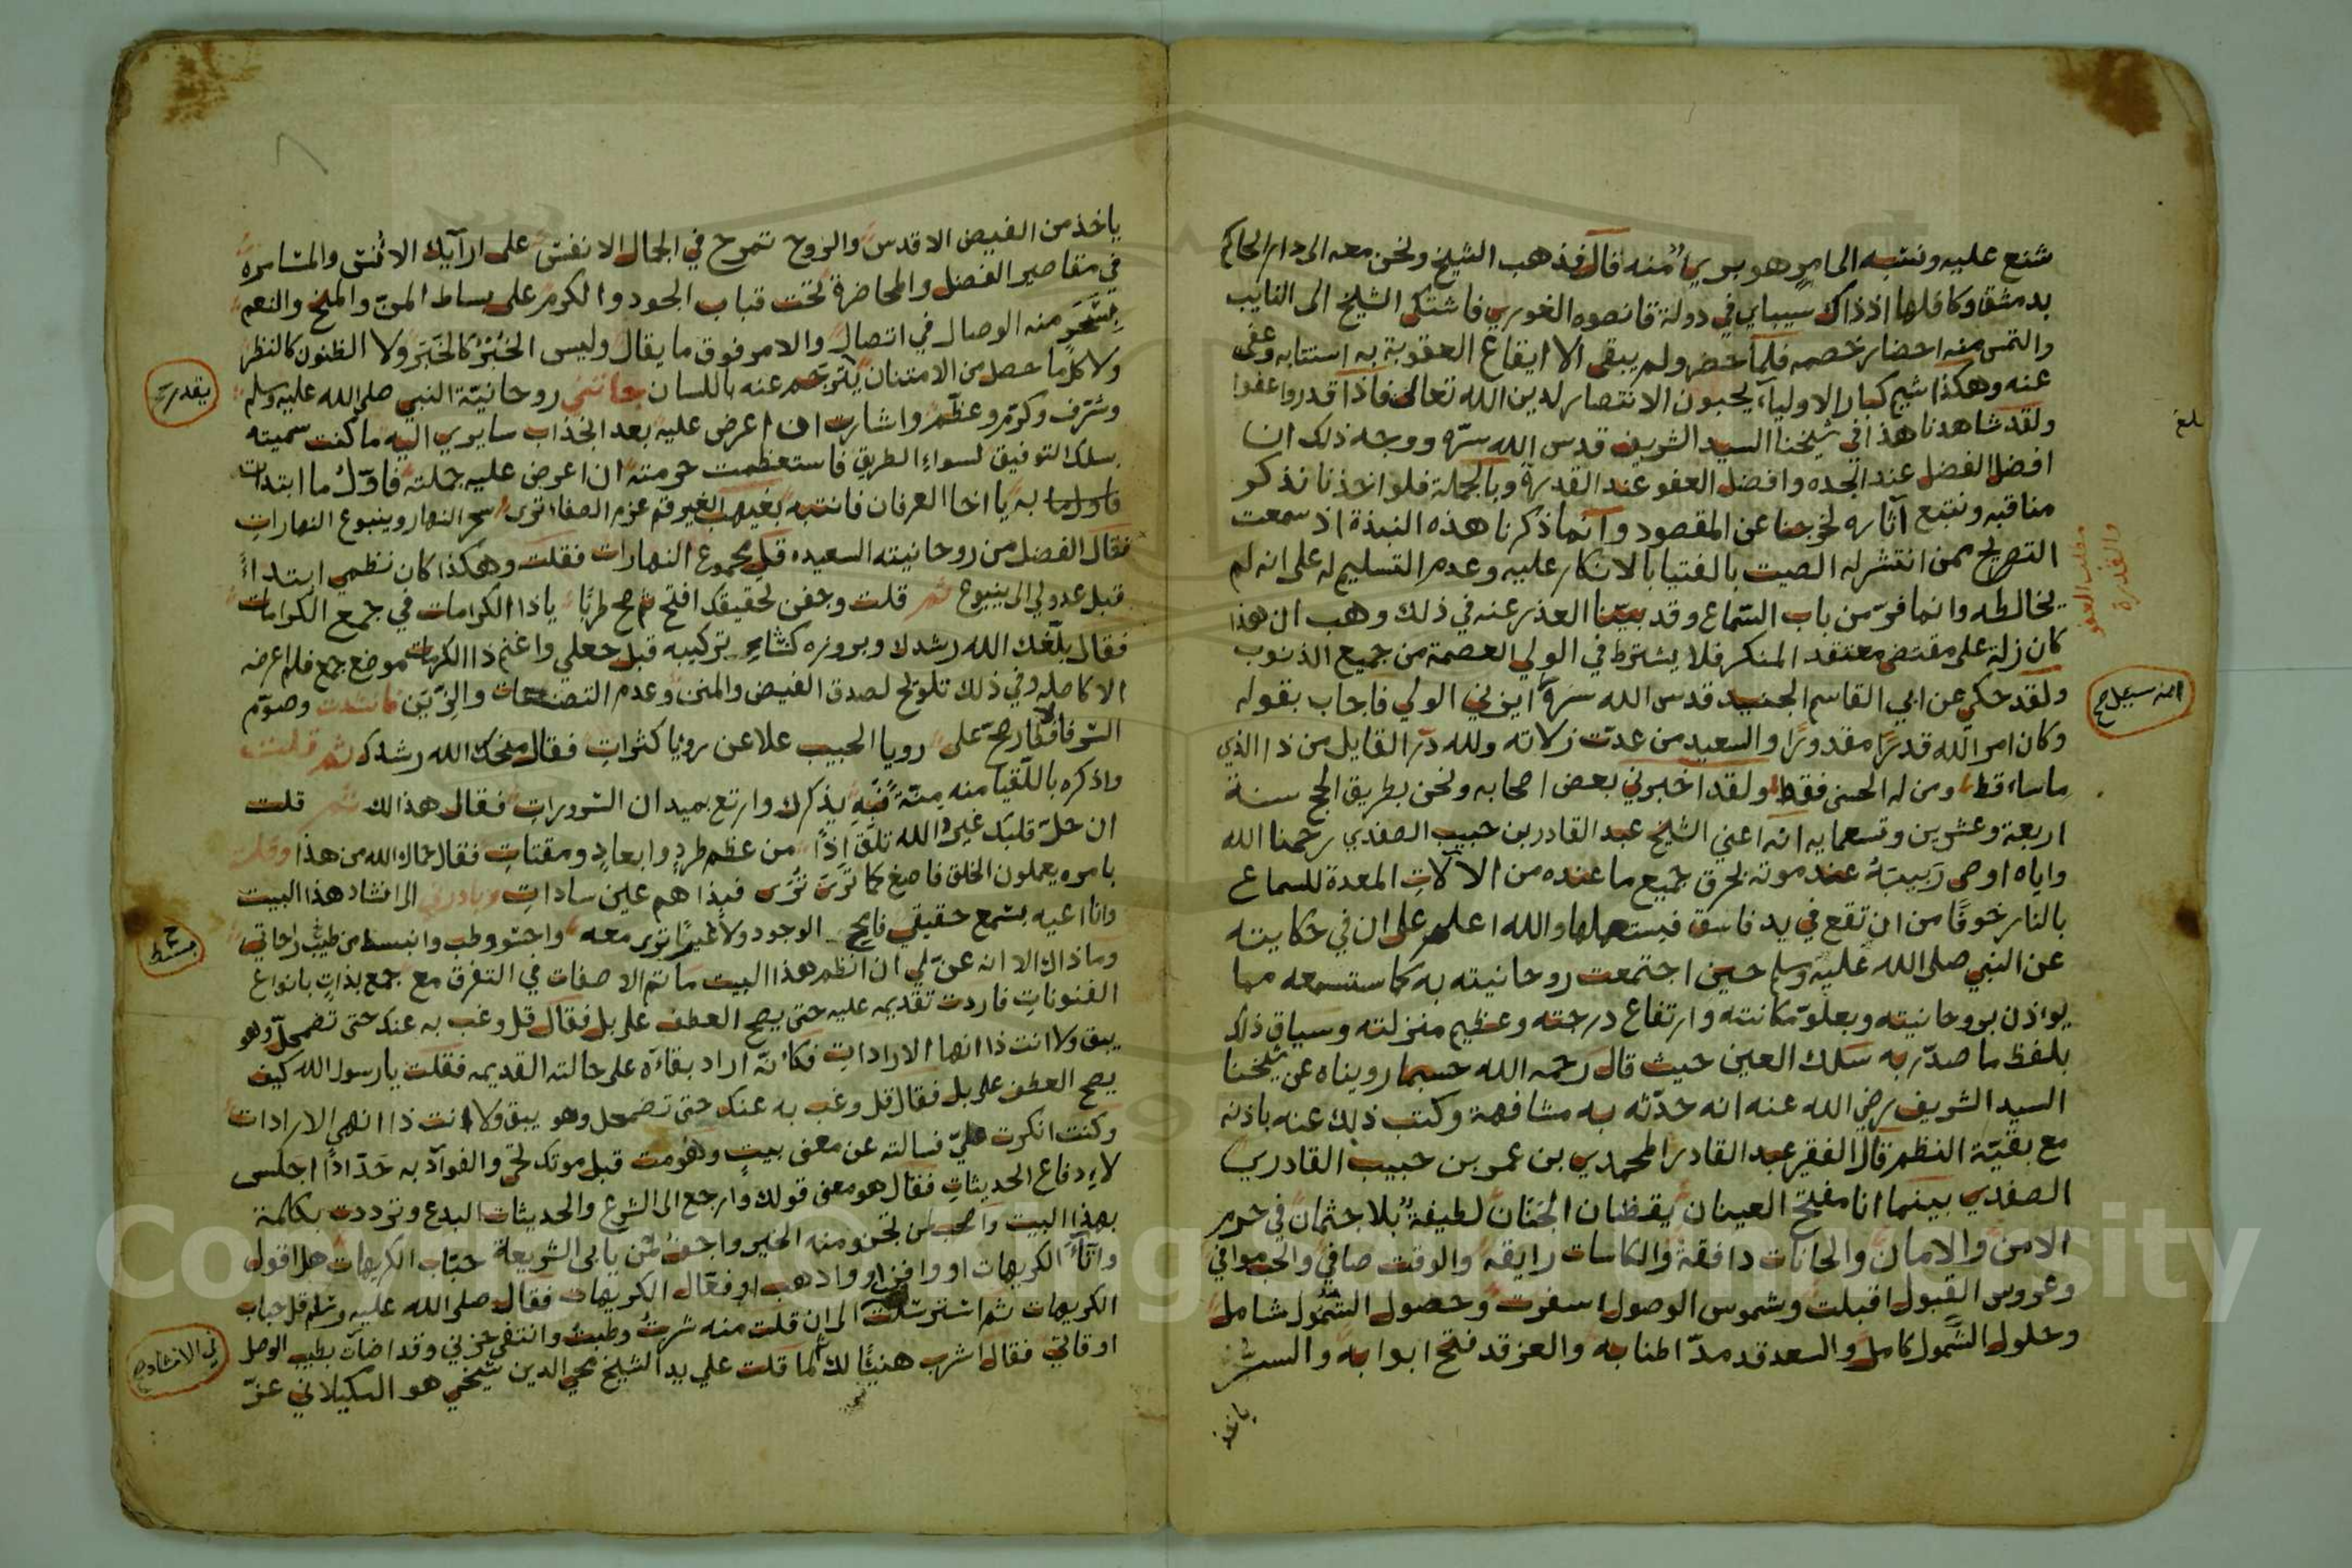 شنع عليه ونسبه الى امر هو بريء منه قال فذهب الشيخ ونحن معه الى دار الحاكم
بدمشق وكافلها اذ ذاك سيباي في دولة قانصوه الغوري فاشتكى الشيخ الى النايب
والتمس منه احضار خصمه فلما حضر ولم يبقى الا ايقاع العقوبة به استتابه وعفى
عنه وهكذا شيم كبار الاولياء يحبون الانتصار لدين الله تعالى فاذا قدروا عفوا
ولقد شاهدنا هذا في شيخنا السيد الشريف قدس الله سره ووجه ذلك ان
افضل الفضل عند الجده وافضل العفو عند القدرة وبالجملة فلو اخذنا نذكر
مناقبه ونتبع آثاره لخرجنا عن المقصود وانما ذكرنا هذه النبذة اذ سمعت
التصريح ممن انتشر له الصيت بالفتيا بالانكار عليه وعدم التسليم له على انه لم
يخالطه وانما فر من باب السماع وقد بينا العذر عنه في ذلك وهب ان هذا
كان زلة على مقتضى معتقد المنكر فلا يشترط في الولي العصمة من جميع الذنوب
ولقد حكي عن ابي القاسم الجنيد قدس الله سره ايزني الولي فاجاب بقوله
وكان امر الله قدرا مقدورا والسعيد من عدت زلاته ولله در القايل من ذا الذي
ما ساء قط ومن له الحسنى فقط ولقد اخبرني بعض اصحابه ونحن بطريق الحج سنة
اربعة وعشرين وتسعمايه انه اعني الشيخ عبد القادر بن حبيب الصفدي رحمنا الله
واياه اوصى ربيبه عند موته بحرق جميع ما عنده من الالات المعدة للسماع
بالنار خوفا من ان تقع في يد فاسق فيستعملها والله اعلم على ان في حكايته
عن النبي صلى الله عليه وسلم حين اجتمعت روحانيته به كما ستسمعه مما
يؤذن بروحانيته وبعلو مكانته وارتفاع درجته وعظيم منزلته وسياق ذلك
بلفظ ما صدر به سلك العين حيث قال رحمه الله حسبما رويناه عن شيخنا
السيد الشريف رضي الله عنه انه حدثه به مشافهة وكتب ذلك عنه باذنه
مع بقية النظم قال الفقير عبد القادر المحمدي بن عمر بن حبيب القادري
الصفدي بينما انا مفتح العينان يقظان الجنان لطيفة بلا جثمان في حرم
الامن والامان والحانات دافقة والكاسات رايقه والوقت صافي والحب موافي
وعروس القبول اقبلت وشموس الوصول اسفرت وحصول الشمول شامل
وحلول الشمول كامل والسعد قد مد اطنابه والعز قد فتح ابوابه والسر
ياخذ
بلغ
مطلب العفو
والقدرة
ياخذ من الفيض الاقدس والروح تمرح في الجمال الانفس على ارآيك الانس والمسامره
في مقاصير الفضل والمحاضرة تحت قباب الجود والكرم على بساط المن والمنح والنعم
منه الوصال في اتصال والامر فوق ما يقال وليس الخبر كالخبر ولا الظنون كالنظر
ولا كل ما حصل من الامتنان يترجم عنه باللسان جائتني روحانية النبي صلى الله عليه وسلم
وشرف وكرم وعظم واشارت ان اعرض عليه بعد انجذاب سايري اليه ما كنت سميته
سلك التوفيق لسواء الطريق فاستعظمت حرمته ان اعرض عليه جملته فاول ما ابتدات
به يا اخا العرفان فانتبه بغيهب الغير قم عزم الصفاء ترى سحر النهار وينبوع النهارات
فقال الفضل من روحانيته السعيده قل مجموع النهارات فقلت وهكذا كان نظمي ابتداء
قبل عدولي الى ينبوع ثم قلت وجفن لحقيقد افتح ثم صح طربا ياذا الكرامات في جمع الكرامات
فقال بلغك الله رشدك وبروزه كشاء تركيبه قبل جعلي واغنم ذا الكرمات موضع جمع فلم اعرضه
الا كاصله وفي ذلك تلويح لصدق الفيض والمنن وعدم التصنعات والزين فانشدت وصوم
السر فافطارحج على رويا الحبيب علا عن رؤيا كثرات فقال منحك الله رشدك ثم قلت
واذكره باللقيا منه منة فبه يذكرك وارتع بميدان السرورات فقال هذا لك ثم قلت
ان حل قلبك غير والله تلق اذا من عظم طرد وابعاد ومقتات فقال حماك الله من هذا وقلت
بامره يعملون الخلق فاصغ كما ترى ترى فبذا هم عين سادات وبادرني الى انشاد هذا البيت
وانا اعيه بسمع حقيقي فايح الوجود ولا غيرا ترى معه واجتو وطب وانبسط من طيب راحاتي
وما ذاك الا انه عن لي ان انظم هذا البيت ما تم الا صفات في التفرق مع جمع بذات بانواع
الفنونات فاردت تقديمه عليه حتى يصح العطف على بل فقال قل وغب به عنك حتى تضمحل وهو
يبق ولا انت ذا انها الارادات فكانه اراد بقاءه على حالته القديمه فقلت يا رسول الله كيف
يصح العطف على بل فقال قل وغب به عنك حتى تضمحل وهو يبق ولا انت ذا انهي الارادات
وكنت انكرت علي فسالته عن معنى بيت وهو مت قبل موتك تحي والفوآد به حدادا اجلس
لاء دفاع الحديثات فقال هو معنى قولك وارجع الى الشرع والحديثات البدع وترددت بكلمة
بهذا البيت واصحب من تجزو منه الخير واجف لمن يابى الشريعة حباب الكريهات هل اقول
وآتاء الكريهات او وافزار واذهب او فعال الكريهات فقال صلى الله عليه وسلم قل حباب
الكريهات ثم استرسلت الى ان قلت منه شربت وطبت وانتفى حزني وقد اضات بطيب الوصل
اوقاتي فقال اشرب هنيئا لك لما قلت على يد الشيخ محي الدين شيخي هو الكيلاني عز
يقدر
بسط
في الانشاد